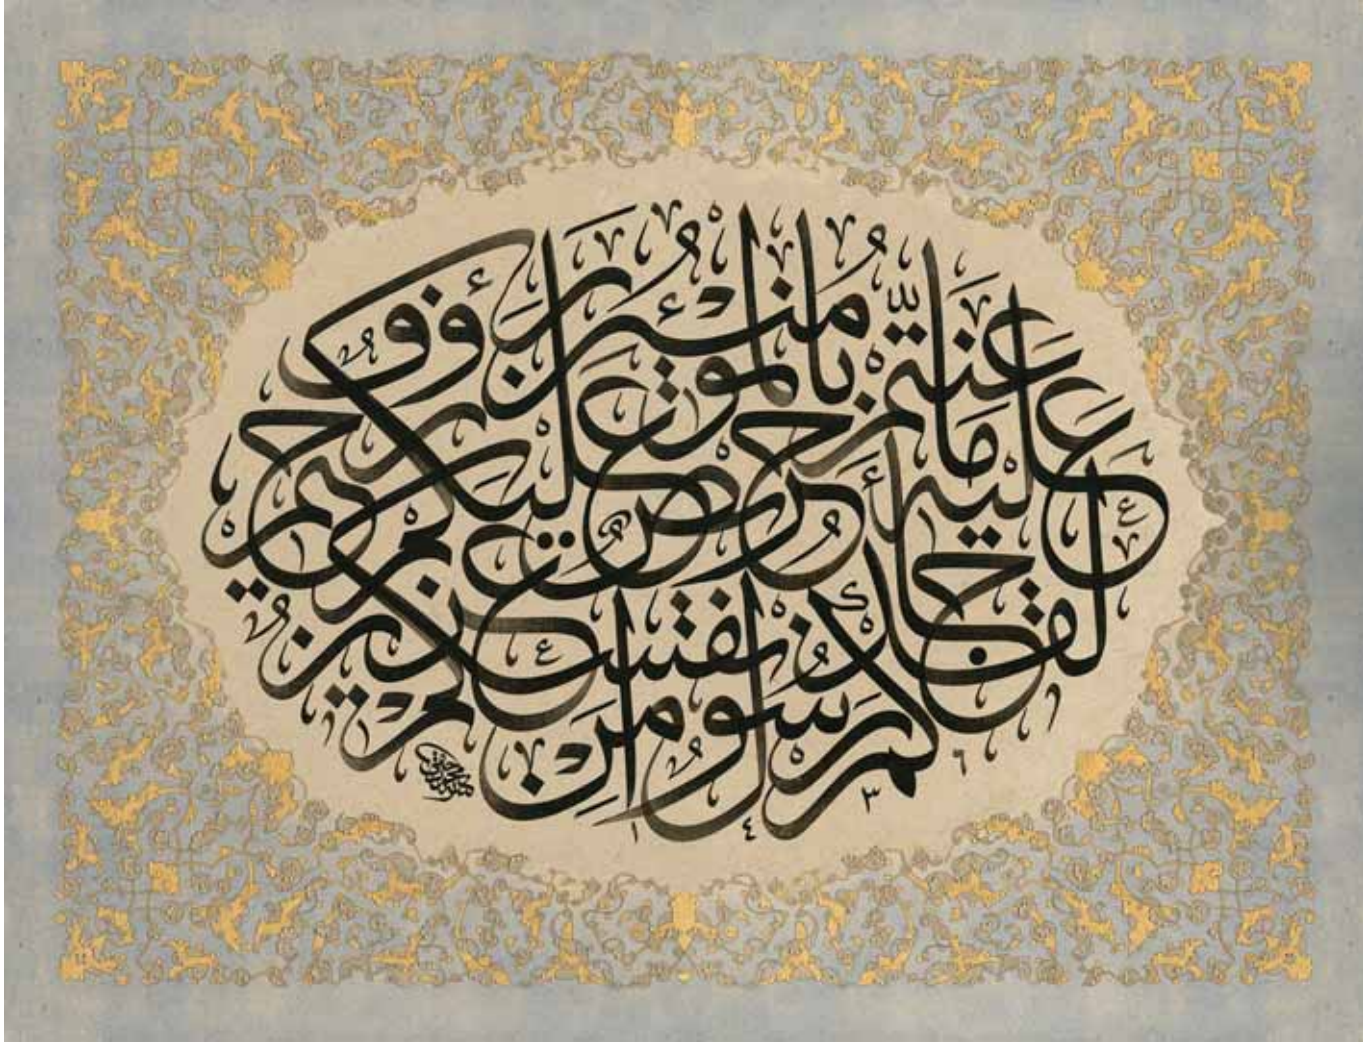 لَقَدْ جَاءَكُمْ رَسُولٌ مِنْ أَنْفُسِكُمْ عَزِيزٌ
عَلَيْهِ مَا عَنِتُّمْ حَرِيصٌ عَلَيْكُمْ
بِالْمُؤْمِنِينَ رَءُوفٌ رَحِيمٌ